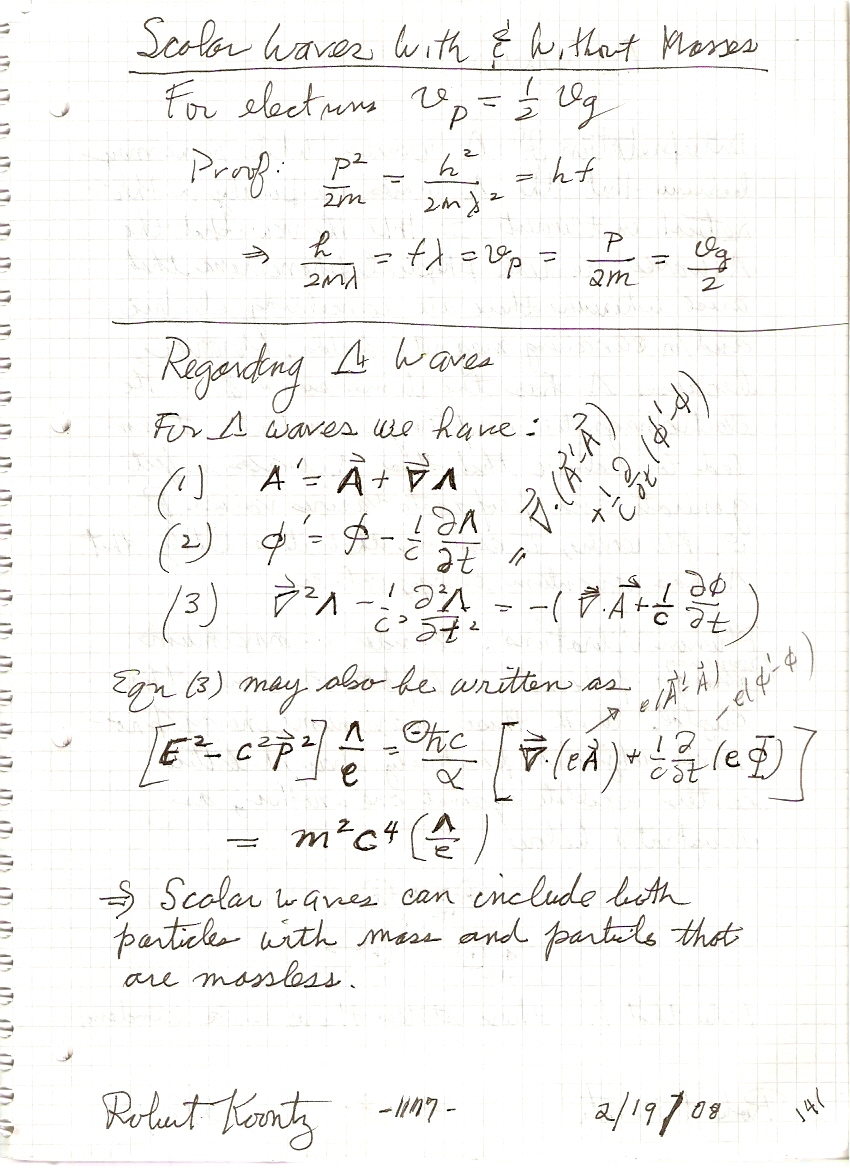 Scalar Waves With & Without Masses
For electrons v_p = 1/2 v_g
Proof: p²/2m = h²/2mλ² = hf
⇒ h/2mλ = fλ = v_p = p/2m = v_g/2
Regarding Λ Waves
For Λ waves we have:
(1) A' = A⃗ + ∇⃗Λ
(2) ϕ' = ϕ - 1/c ∂Λ/∂t
∇⃗·(A⃗'-A⃗)
× 1/c ∂/∂t (ϕ'-ϕ)
"
(3) ∇⃗²Λ - 1/c² ∂²Λ/∂t² = -(∇⃗·A⃗ + 1/c ∂ϕ/∂t)
Eqn (3) may also be written as
e(A⃗'-A⃗)
e(ϕ'-ϕ)
[E² - c²p⃗²] Λ/e = ⊖ħc/α [∇⃗·(eA⃗) + 1/c ∂/∂t (eΦ)]
= m²c⁴ (Λ/e)
⇒ Scalar waves can include both
particles with mass and particls that
are massless.
Robert Koontz 2/19/08 141